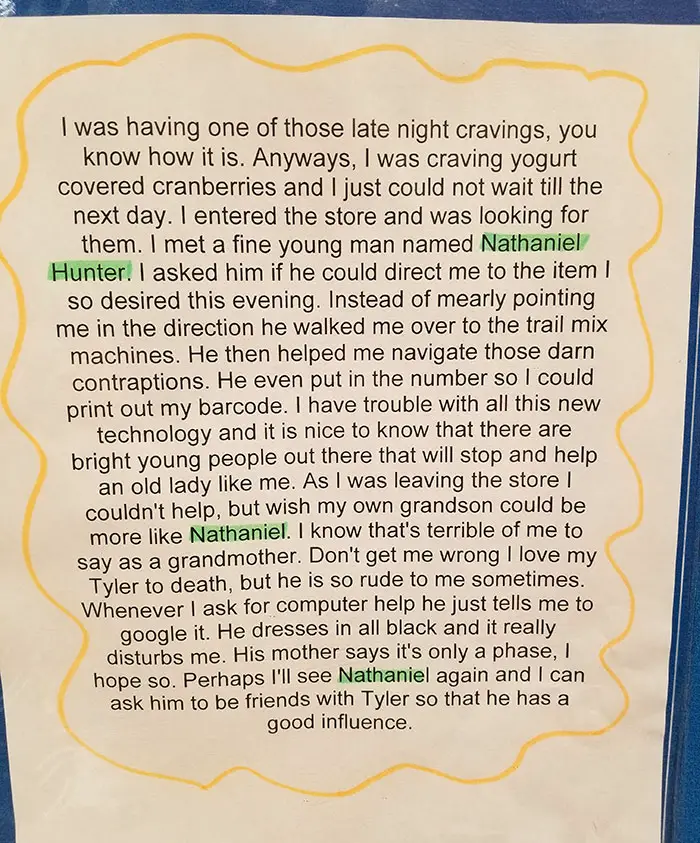 I was having one of those late night cravings, you
know how it is. Anyways, I was craving yogurt
covered cranberries and I just could not wait till the
next day. I entered the store and was looking for
them. I met a fine young man named Nathaniel
Hunter. I asked him if he could direct me to the item I
so desired this evening. Instead of mearly pointing
me in the direction he walked me over to the trail mix
machines. He then helped me navigate those darn
contraptions. He even put in the number so I could
print out my barcode. I have trouble with all this new
technology and it is nice to know that there are
bright young people out there that will stop and help
an old lady like me. As I was leaving the store I
couldn't help, but wish my own grandson could be
more like Nathaniel. I know that's terrible of me to
say as a grandmother. Don't get me wrong I love my
Tyler to death, but he is so rude to me sometimes.
Whenever I ask for computer help he just tells me to
google it. He dresses in all black and it really
disturbs me. His mother says it's only a phase, I
hope so. Perhaps I'll see Nathaniel again and I can
ask him to be friends with Tyler so that he has a
good influence.